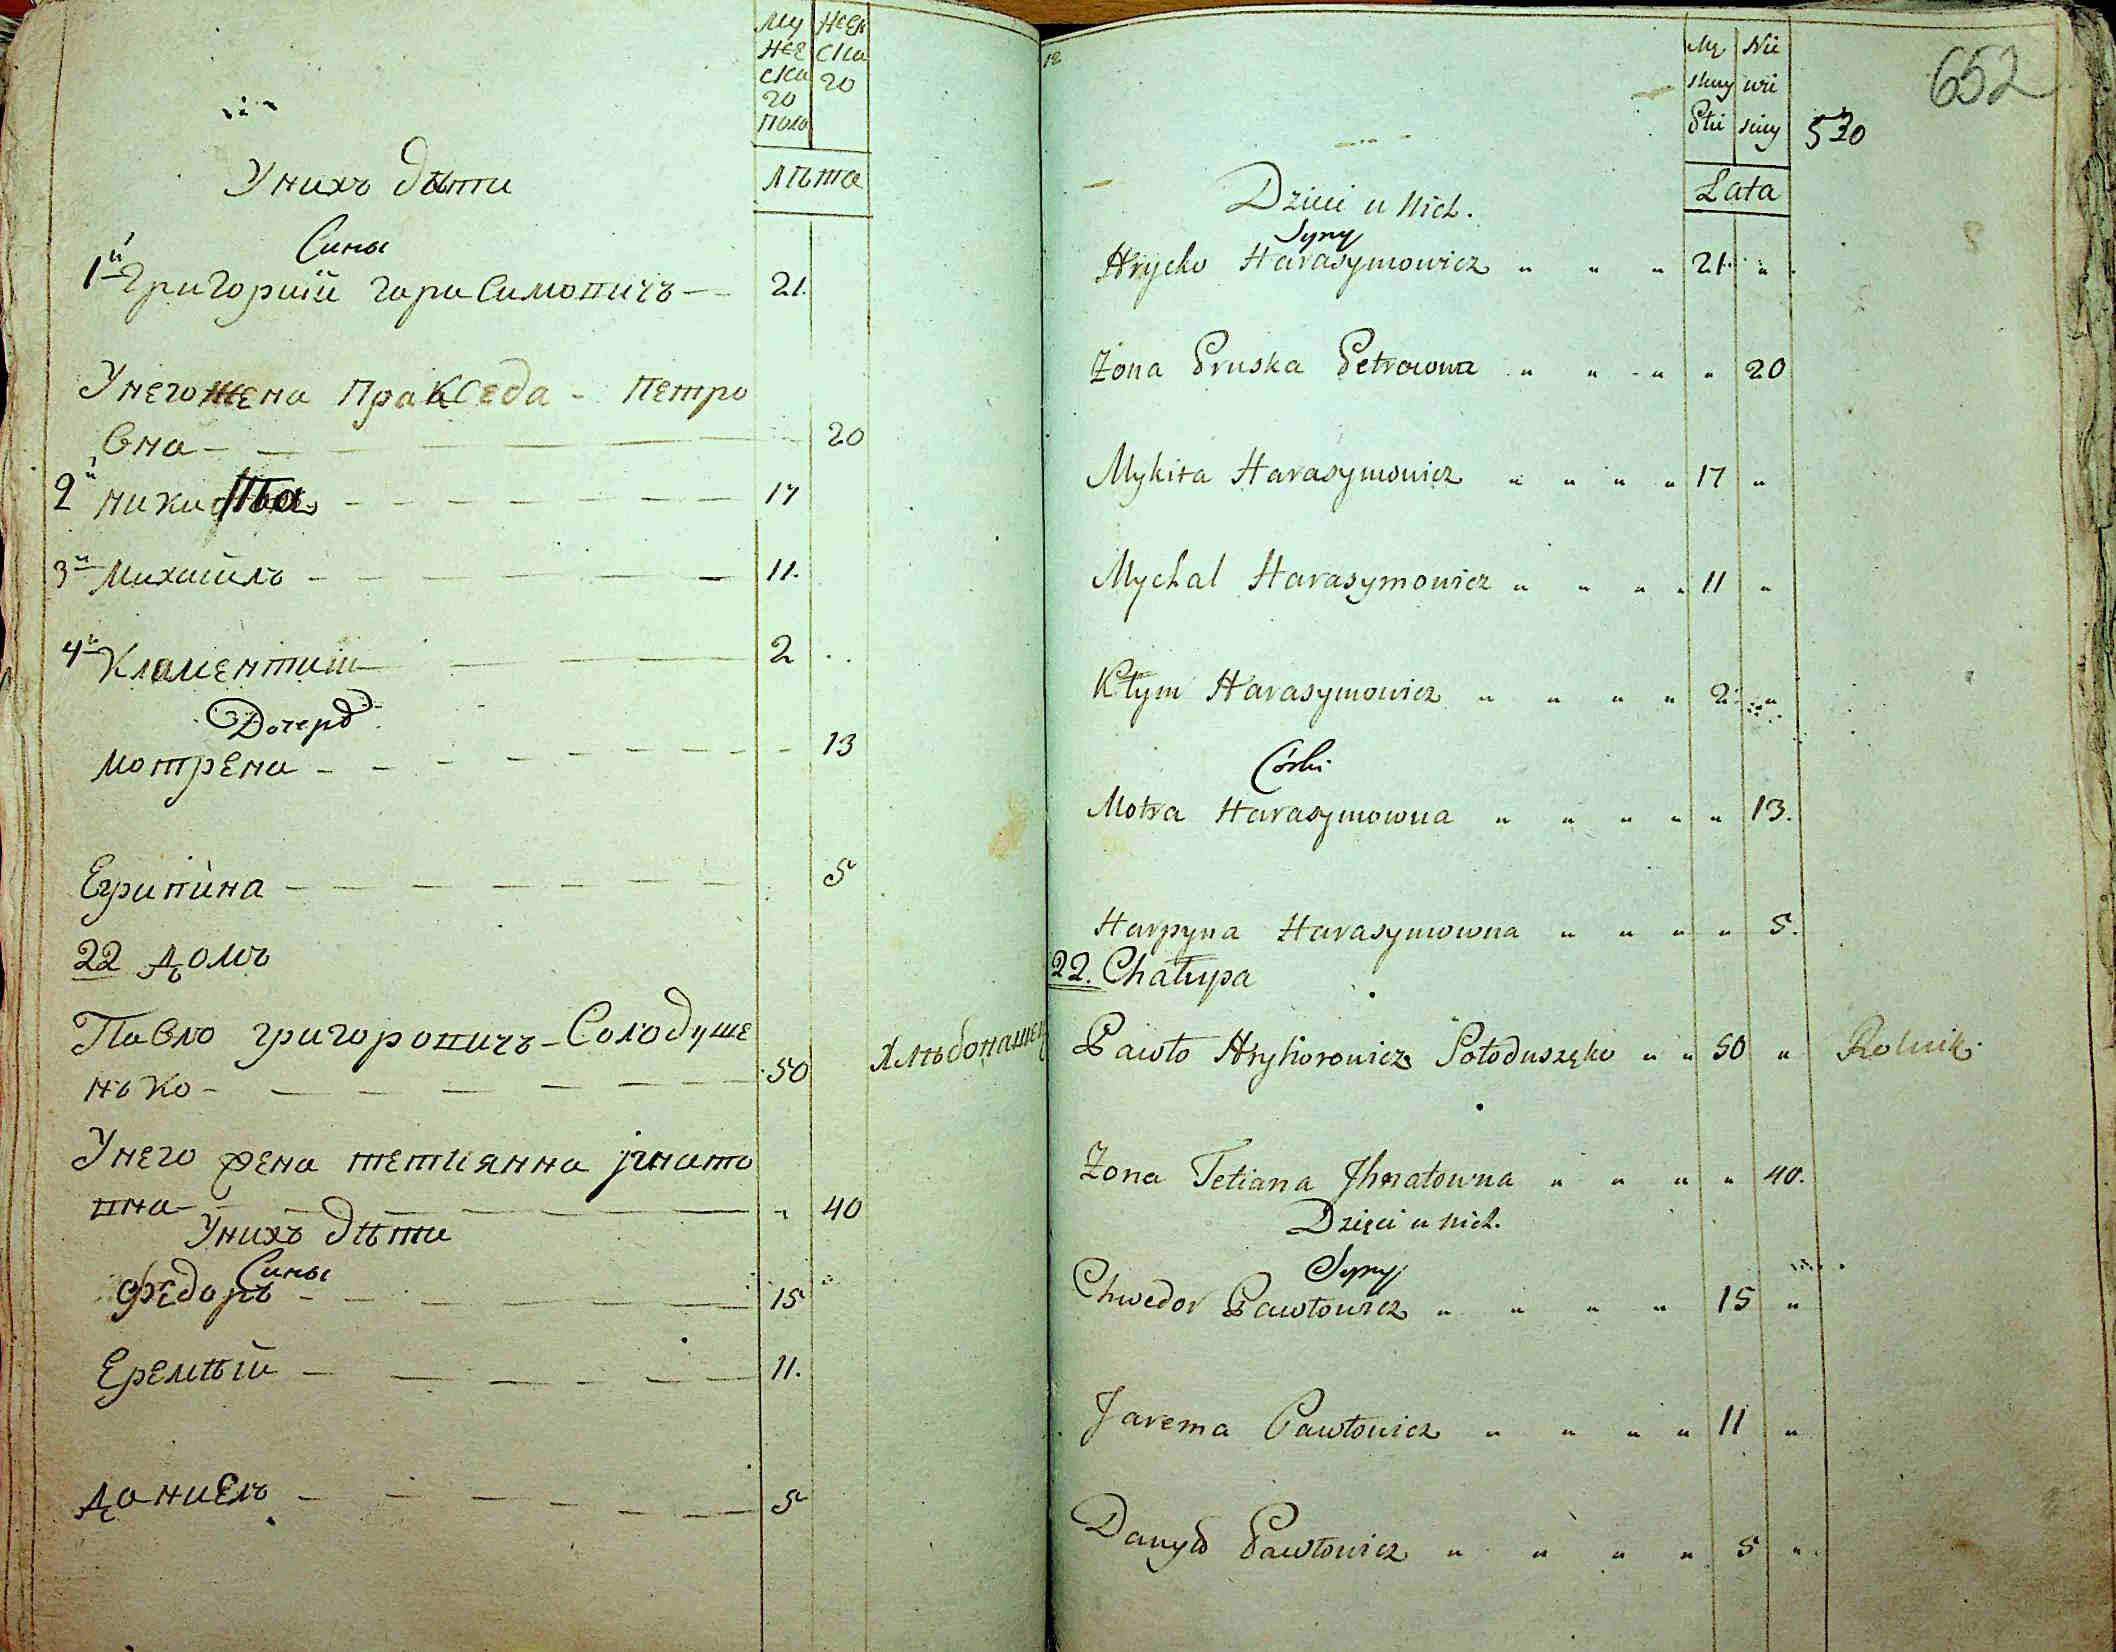 Му Жен
жес ска
ска го
го
пола
лѣта
Унихъ дѣти
Сины
1й Григорий гарасимовичъ 21.
Унего жена Пракседа - Петро
вна 20
2й никита 17
3й Михаилъ 11.
4й Климентий 2
Дочерѣ
Мотрена 13
Егрипина 5
22 домъ
Павло григоровичъ - Солодуше
нько 50 хлѣбопашец
Унего жена тетиянна игнато
вна 40
Унихъ дѣти
Сины
Федоръ 15
Еремѣй 11.
даниелъ 5
652
Mę Nie
skuy wie
Płci sciey
530
Lata
Dzieci u nich.
Syny
Hrycko Harasymowicz " " " 21. "
Żona Pruska Petrowna " " " " 20
Mykita Harasymowicz " " " " 17 "
Mychal Harasymowicz " " " " 11 "
Kłym Harasymowicz " " " " 2 "
Córki
Motra Harasymowna " " " " " 13.
Harpyna Harasymowna " " " " 5.
22. Chałupa
Pawło Hryhorowicz Sołoduszęko " " 50 " Rolnik.
Żona Tetiana Jhnatowna " " " " 40.
Dzięci u nich.
Syny
Chwedor Pawłowicz " " " " 15 "
Jarema Pawłowicz " " " " 11 "
Danyło Pawłowicz " " " " 5 "